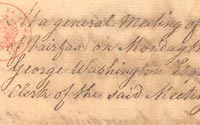 At a general Meeting of
Fairfax on Monday th
George Washington Esq
Clerk of the said Meeting